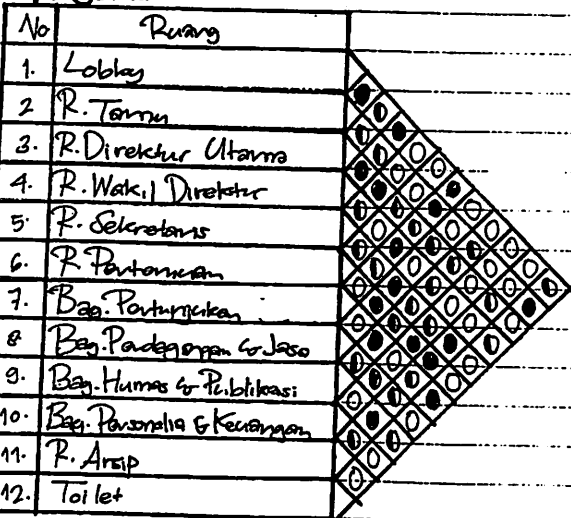 No Ruang
1. Lobby
2 R. Tamu
3. R. Direktur Utama
4. R. Wakil Direktur
5. R. Sekretaris
6. R Pertemuan
7. Bag.
8 Bag. Perdagangan & Jasa
9. Bag. Humas & Publikasi
10. Bag. Personalia & Keuangan
11. R. Arsip
12. Toilet